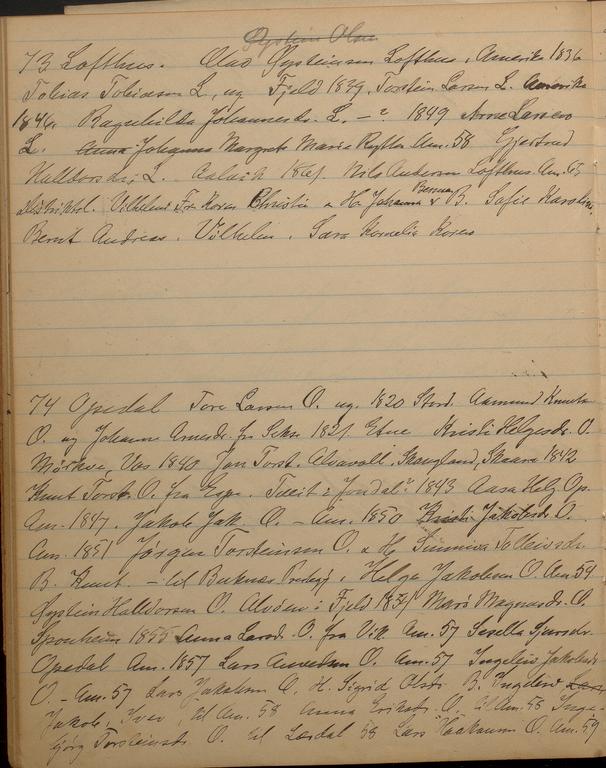 Øystein Olsen
73 Lofthus. Olav Øysteinsen Lofthus, Amerika 1836
Tobias Tobiasen L, ug Fjeld 1839, Torstein Larsen L. Amerika
1846. Ragnhilda Johannesdr. L. – ? 1849 Arne Larsen
L. Anna Johanna Margrete Marie Am. 58 Gjertrud
Halldorsdr. L. Nils Anderson Lofthus. Am. 65
Vilhelm Fr. Koren Christi & H. Johanna & B. Sofie Karoline,
Benna
Bernt Andreas, Vilhelm, Sara Kornelia Koren
74 Opedal Tore Larsen O. ug. 1820 Stord. Aamund Knutsen
O. ug Johanna Arnesdr. fr. Sekse 1821 Etne Kristi Helgesdr. O.
Mörkve, Vos 1840 Jon Torst. Alvavoll. Skaugland, Skaare 1842
Knut Torst. O. fra Espe. Tveit i Jondal? 1843 Aasa Helg. Op.
Am. 1847. Jakob Jak. O. – Am. 1850 Kristi Jakobsdr. O.
Am. 1851 Jørgen Torsteinsen O. & H. Sunniva Tolleivsdr.
B. Knut. – til Buknæs Prestegj, Helga Jakobsen O. Am 59
Øystein Halldorsen O. Alvöen i Fjeld Marò Magnesdr. O.
Sponheim 1855 Anna Larsd. O. fra Vik. Am. 57 Sesella Sjursdr.
Opedal Am. 1857 Lars Amundsen O. Am. 57 Ingeleiv Jakobsdr
O. – Am. 57 Lars Jakobsen O. H. Sigrid Olsdr. B. Ingleiv
Jakob, Iver, til Am. 58 Anna Eriksdr. O. til Am. 58 Inge-
björg Torsteinsdr O. til Lærdal 58 Lars Haakonsen O. Am. 59